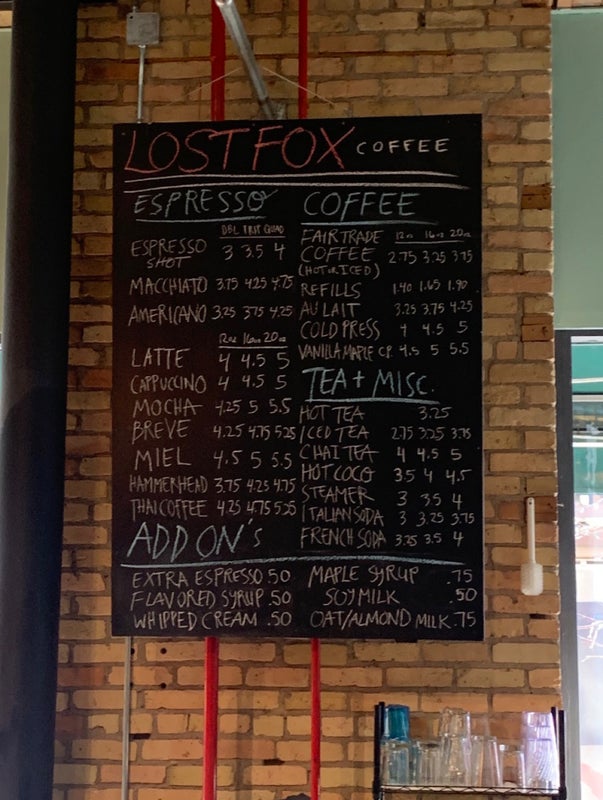 LOST FOX COFFEE
ESPRESSO
DBL TRIP QUAD
ESPRESSO SHOT 3 3.5 4
MACCHIATO 3.75 4.25 4.75
AMERICANO 3.25 3.75 4.25
12oz 16oz 20oz
LATTE 4 4.5 5
CAPPUCCINO 4 4.5 5
MOCHA 4.25 5 5.5
BREVE 4.25 4.75 5.25
MIEL 4.5 5 5.5
HAMMERHEAD 3.75 4.25 4.75
THAI COFFEE 4.25 4.75 5.25
COFFEE
12oz 16oz 20oz
FAIR TRADE
COFFEE 2.75 3.25 3.75
(HOT OR ICED)
REFILLS 1.40 1.65 1.90
AU LAIT 3.25 3.75 4.25
COLD PRESS 4 4.5 5
VANILLA MAPLE CP 4.5 5 5.5
TEA + MISC.
HOT TEA 3.25
ICED TEA 2.75 3.25 3.75
CHAI TEA 4 4.5 5
HOT COCO 3.5 4 4.5
STEAMER 3 3.5 4
ITALIAN SODA 3 3.25 3.75
FRENCH SODA 3.25 3.5 4
ADD ON's
EXTRA ESPRESSO .50
FLAVORED SYRUP .50
WHIPPED CREAM .50
MAPLE SYRUP .75
SOY MILK .50
OAT/ALMOND MILK .75